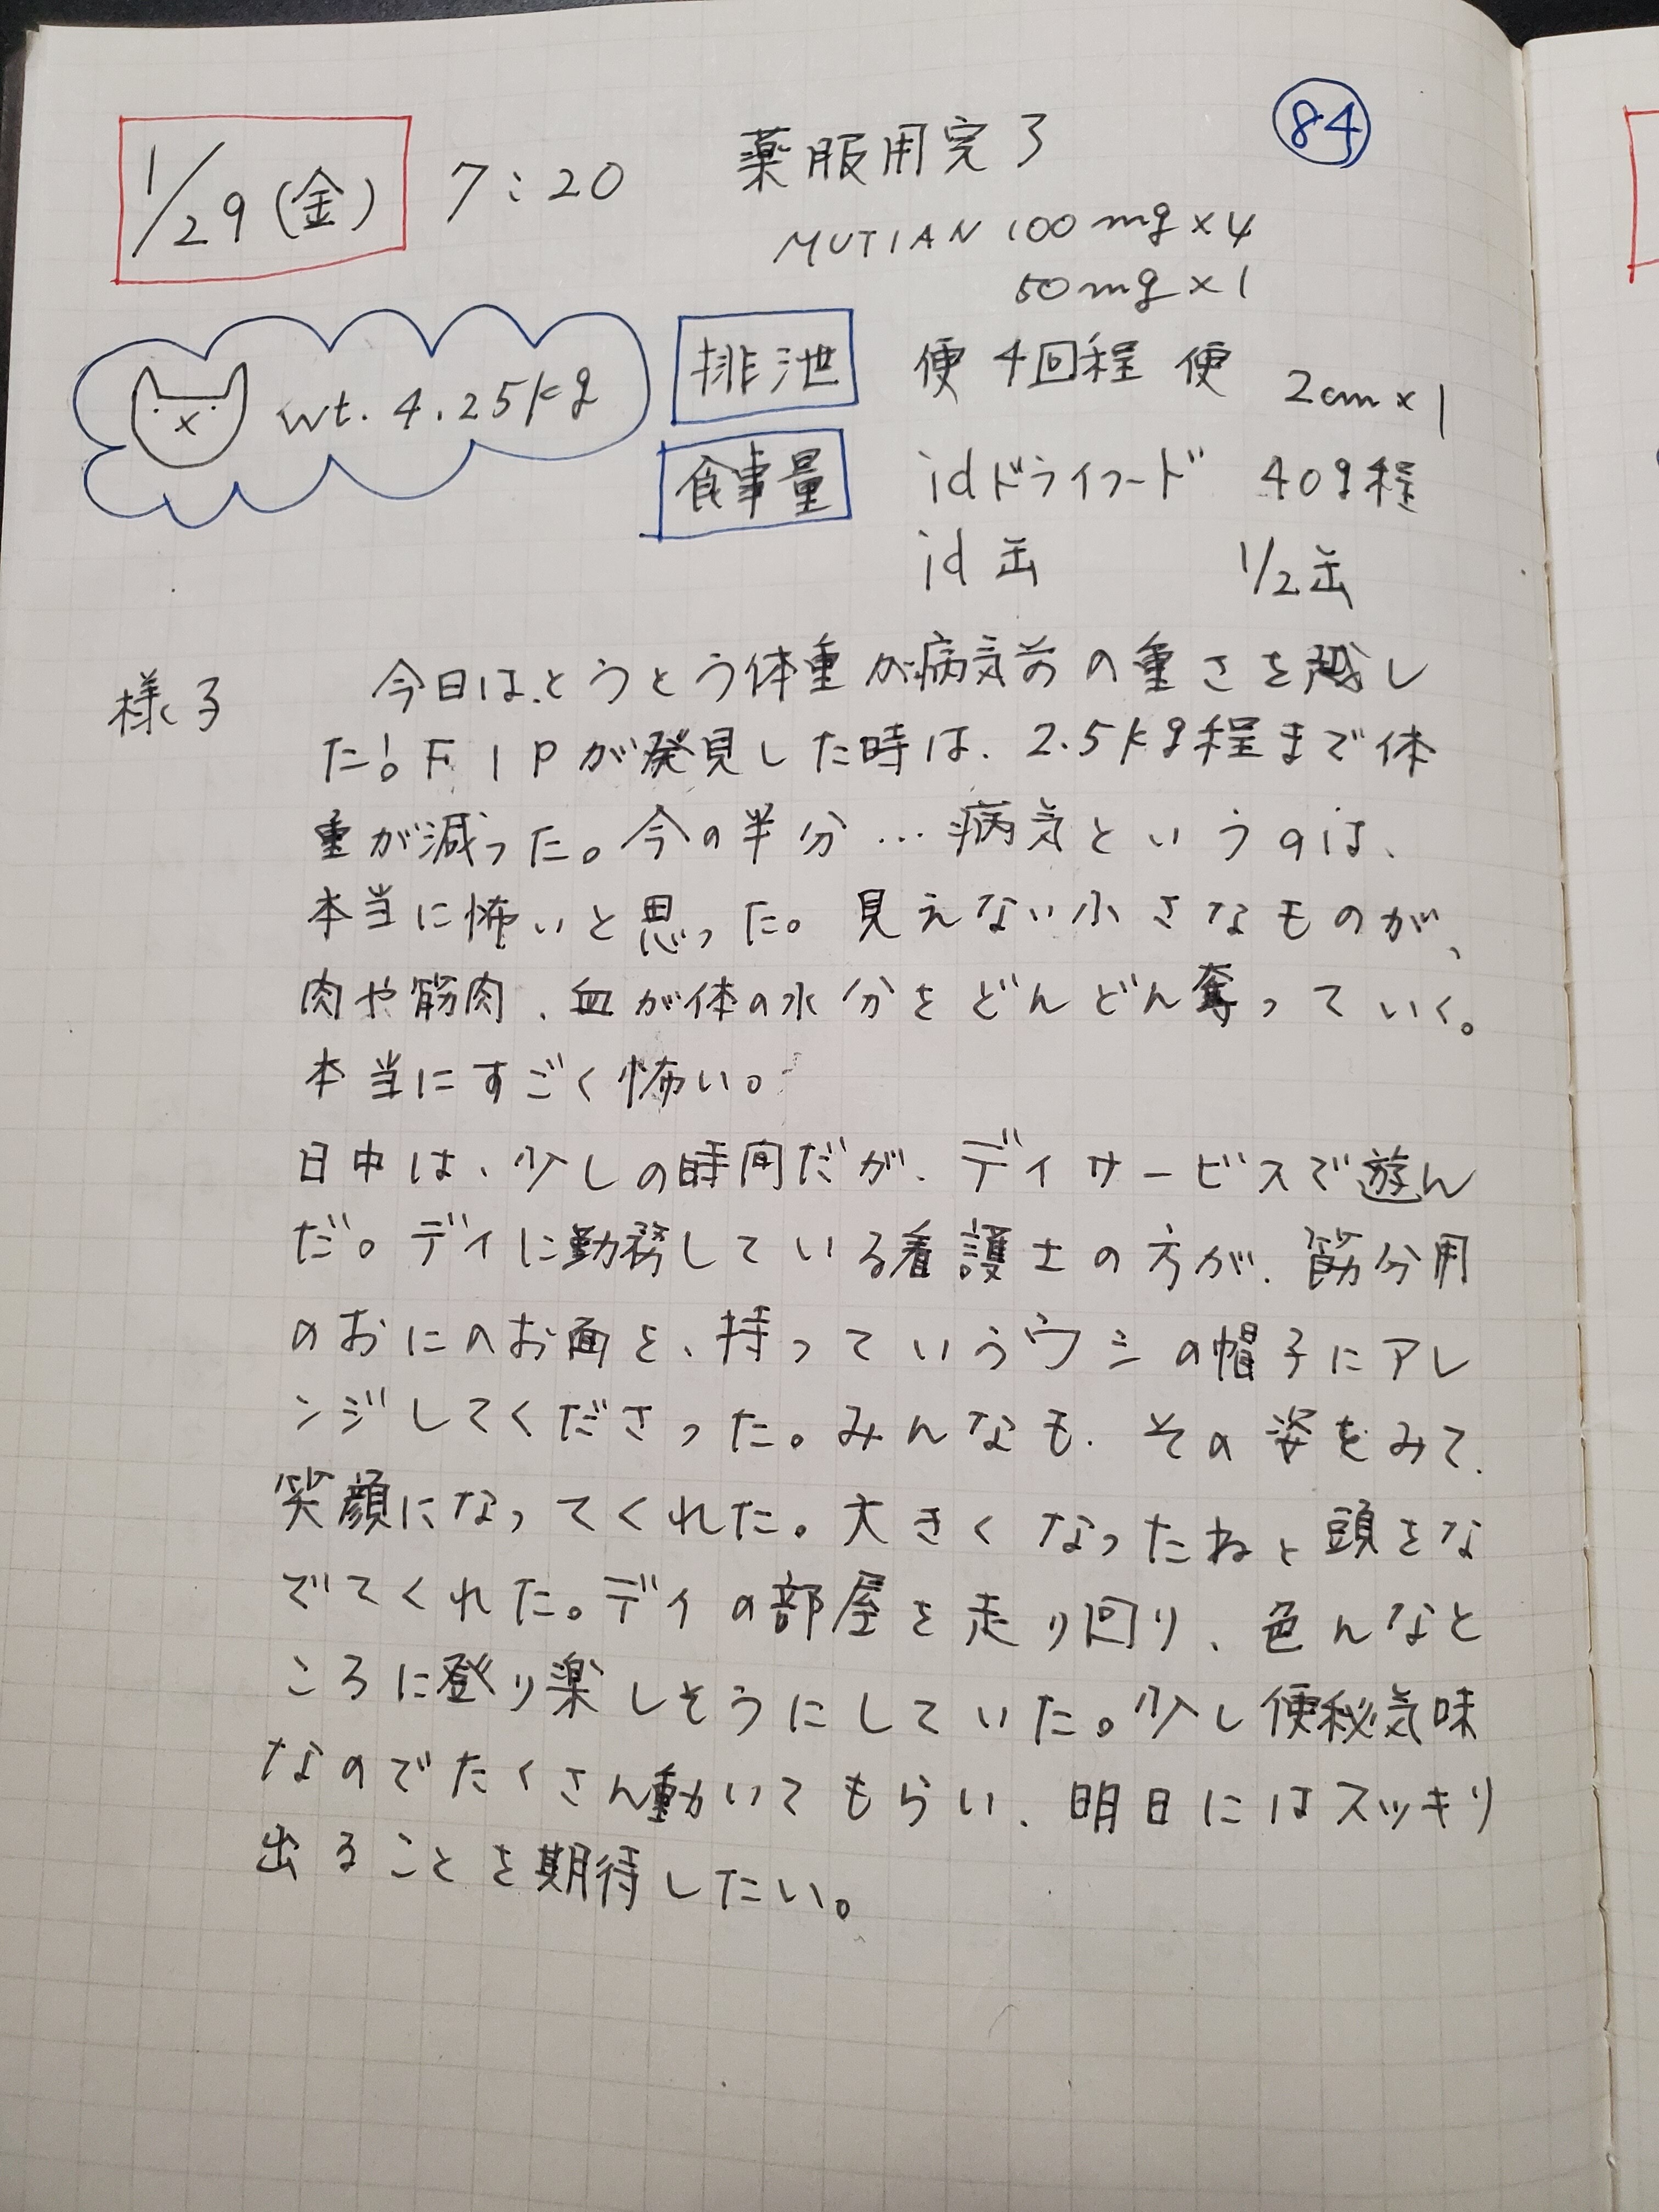 84
1/29(金) 7:20 薬服用完了
MUTIAN 100mg×4
50mg×1
wt. 4.25kg
排泄 便 4回程 便 2cm×1
食事量 idドライフード 40g程
id 缶 1/2缶
様子 今日は、とうとう体重が病気前の重さを越し
た!。FIPが発見した時は、2.5kg程まで体
重が減った。今の半分…病気というのは、
本当に怖いと思った。見えない小さなものが、
肉や筋肉、血が体の水分をどんどん奪っていく。
本当にすごく怖い。
日中は、少しの時間だが、デイサービスで遊ん
だ。デイに勤務している看護士の方が、節分用
のおにのお面を、持っていうウシの帽子にアレ
ンジしてくださった。みんなも、その姿をみて、
笑顔になってくれた。大きくなったねと頭をな
でてくれた。デイの部屋を走り回り、色んなと
ころに登り楽しそうにしていた。少し便秘気味
なのでたくさん動いてもらい、明日にはスッキリ
出ることを期待したい。